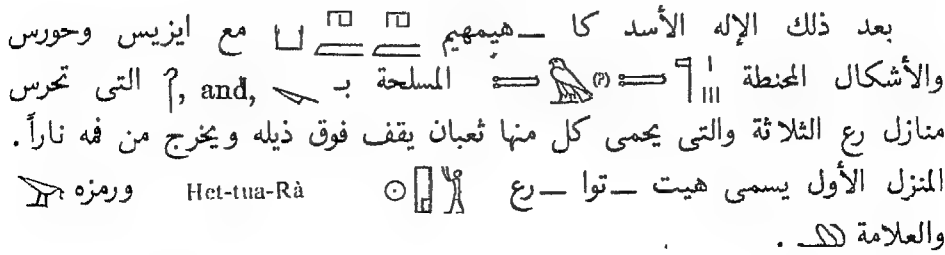 بعد ذلك الإله الأسد كا ــهيمهيم مع ايزيس وحورس
والأشكال المحنطة (P) المسلحة بـ and, , التى تحرس
منازل رع الثلاثة والتى يحمى كل منها ثعبان يقف فوق ذيله ويخرج من فمه ناراً.
المنزل الأول يسمى هيت ــتوا ــرع Het-tua-Rà ورمزه
والعلامة .